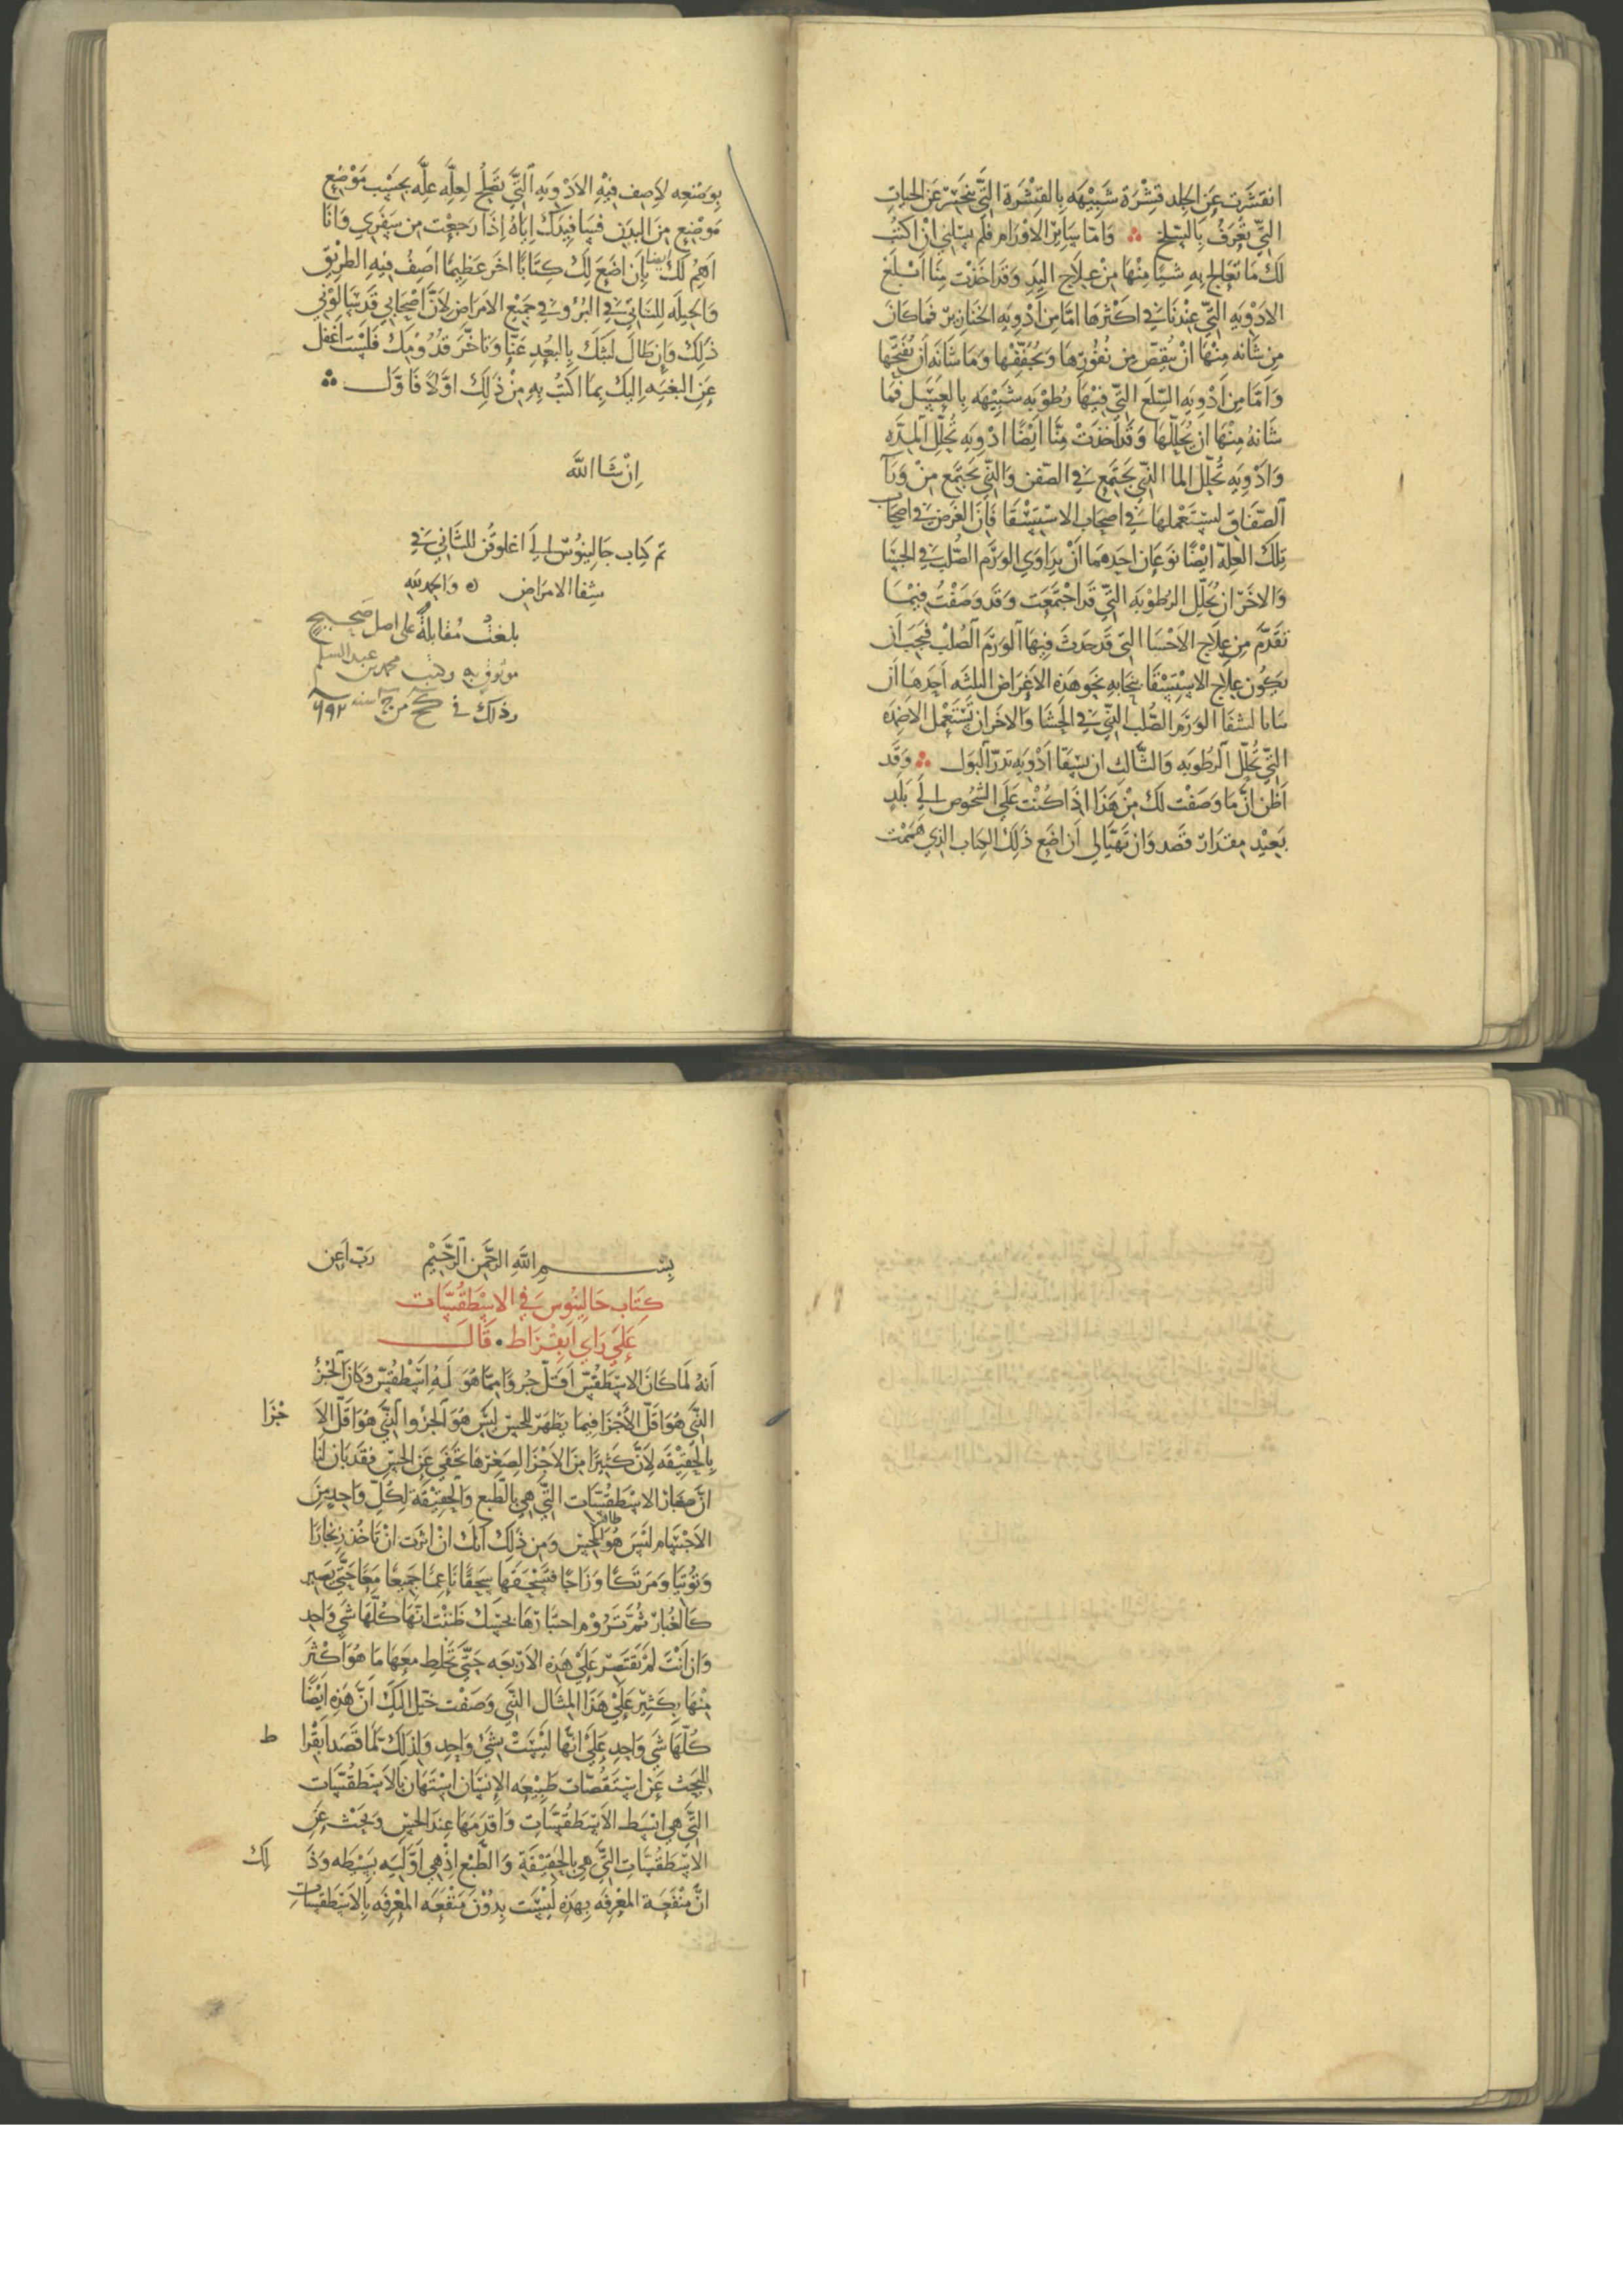 انقشرت عن الجلد قشرة شبيهه بالقشرة التي تنحسر عن الحيات
التي تعرف بالسلخ ∴ واما ساير الاورام فلم تسلني ان اكتب
لك ما تعالج به شيا منها من علاج اليد وقد اخذت منا اسلغ
الادويه التي عندنا في اكثرها اما من ادويه الخنازير فما كان
من شانه منها ان ينقص من نفورها ويجففها وما شانه ان يفتحها
واما من ادويه السلع التي فيها رطوبه شبيهه بالعسل فما
شانه منها ان يحللها وقد اخذت منا ايضا ادويه تحلل المده
وادويه تحلل الما الذي يجتمع في الصفن والذي يجتمع من ورآ
الصفاق لتستعملها في اصحاب الاستسقا فان الغرض في اصحاب
تلك العله ايضا نوعان احدهما ان يداوي الورم الصلب في الحشا
والاخر ان تحلل الرطوبه التي قد اجتمعت وقد وصفت فيما
تقدم من علاج الاحشا التي قد حدث فيها الورم الصلب فيجب ان
يكون علاج الاستسقا بنحو هذه الاغراض الثلثه احدها ان
شفا الورم الصلب الذي في الحشا والاخر ان تستعمل الاضمده
التي تحلل الرطوبه والثالث ان يسقا ادويه تدر البول ∴ وقد
اظن ان ما وصفت لك من هذا اذا كنت على الشخوص الى بلد
بعيد مقدار قصد وان تهيا لي ان اضع ذلك الكتاب الذي هممت
بوضعه لاصف فيه الادويه التي تصلح لعله عله بحسب موضع
موضع من البدن فسافيدك اياه اذا رجعت من سفري وانا
اهم لك ايضا بان اضع لك كتابا اخر عظيما اصف فيه الطريق
والحيله للتاتي في البرو في جميع الامراض لان اصحابي قد سالوني
ذلك وان طال لبثك بالبعد عنا وتاخر قدومك فلست اغفل
عن البغيه اليك بما اكتب به من ذلك اولا فاول ∴
ان شا الله
تم كتاب جالينوس الى اغلوقن الثاني في
شفا الامراض ه والحمد لله
بلغت مقابلة على اصل صحيح
موثوق به وكتب محمد بن عبد السلم
وذلك في من سنه ٦٩٢
بسم الله الرحمن الرحيم رب اعن
كتاب جالينوس في الاسطقسات
على راي ابقراط • قال
انه لما كان الاسطقس اقل جزوا مما هو له اسطقس وكان الجزؤ
الذي هو اقل الاجزا فيما يظهر للحس ليس هو الجزو الذي هو اقل الا جزا
بالحقيقه لان كثيرا من الاجزا لصغرها تخفى عن الحس فقد بان لنا
ان صغار الاسطقسات التي هي بالطبع والحقيقة لكل واحد من
الاجسام ليس هو ظاهر للحس ومن ذلك انك ان اثرت ان تاخذ زنجارا
وتوتيا ومرتكا وزاجا فتسحقها سحقا ناعما جميعا معا حتى يصير
كالغبار ثم تروم احتبارها بحسك ظننت انها كلها شي واحد
وان انت لم تقتصر على هذه الاربعه حتى تخلط معها ما هو اكثر
منها بكثير على هذا المثال الذي وصفت خيل اليك ان هذه ايضا
كلها شي واحد على انها ليست بشي واحد ولذلك لما قصد ابقرا ط
للبحث عن استقصات طبيعه الانسان استهان بالاسطقسات
التي هي ابسط الاسطقسات واقدمها عند الحس وبحث عن
الاسطقسات التي هي بالحقيقة والطبع اذ هي اوليه بسيطه وذ لك
ان منفعة المعرفه بهذه ليست بدون منفعه المعرفه بالاسطقسات